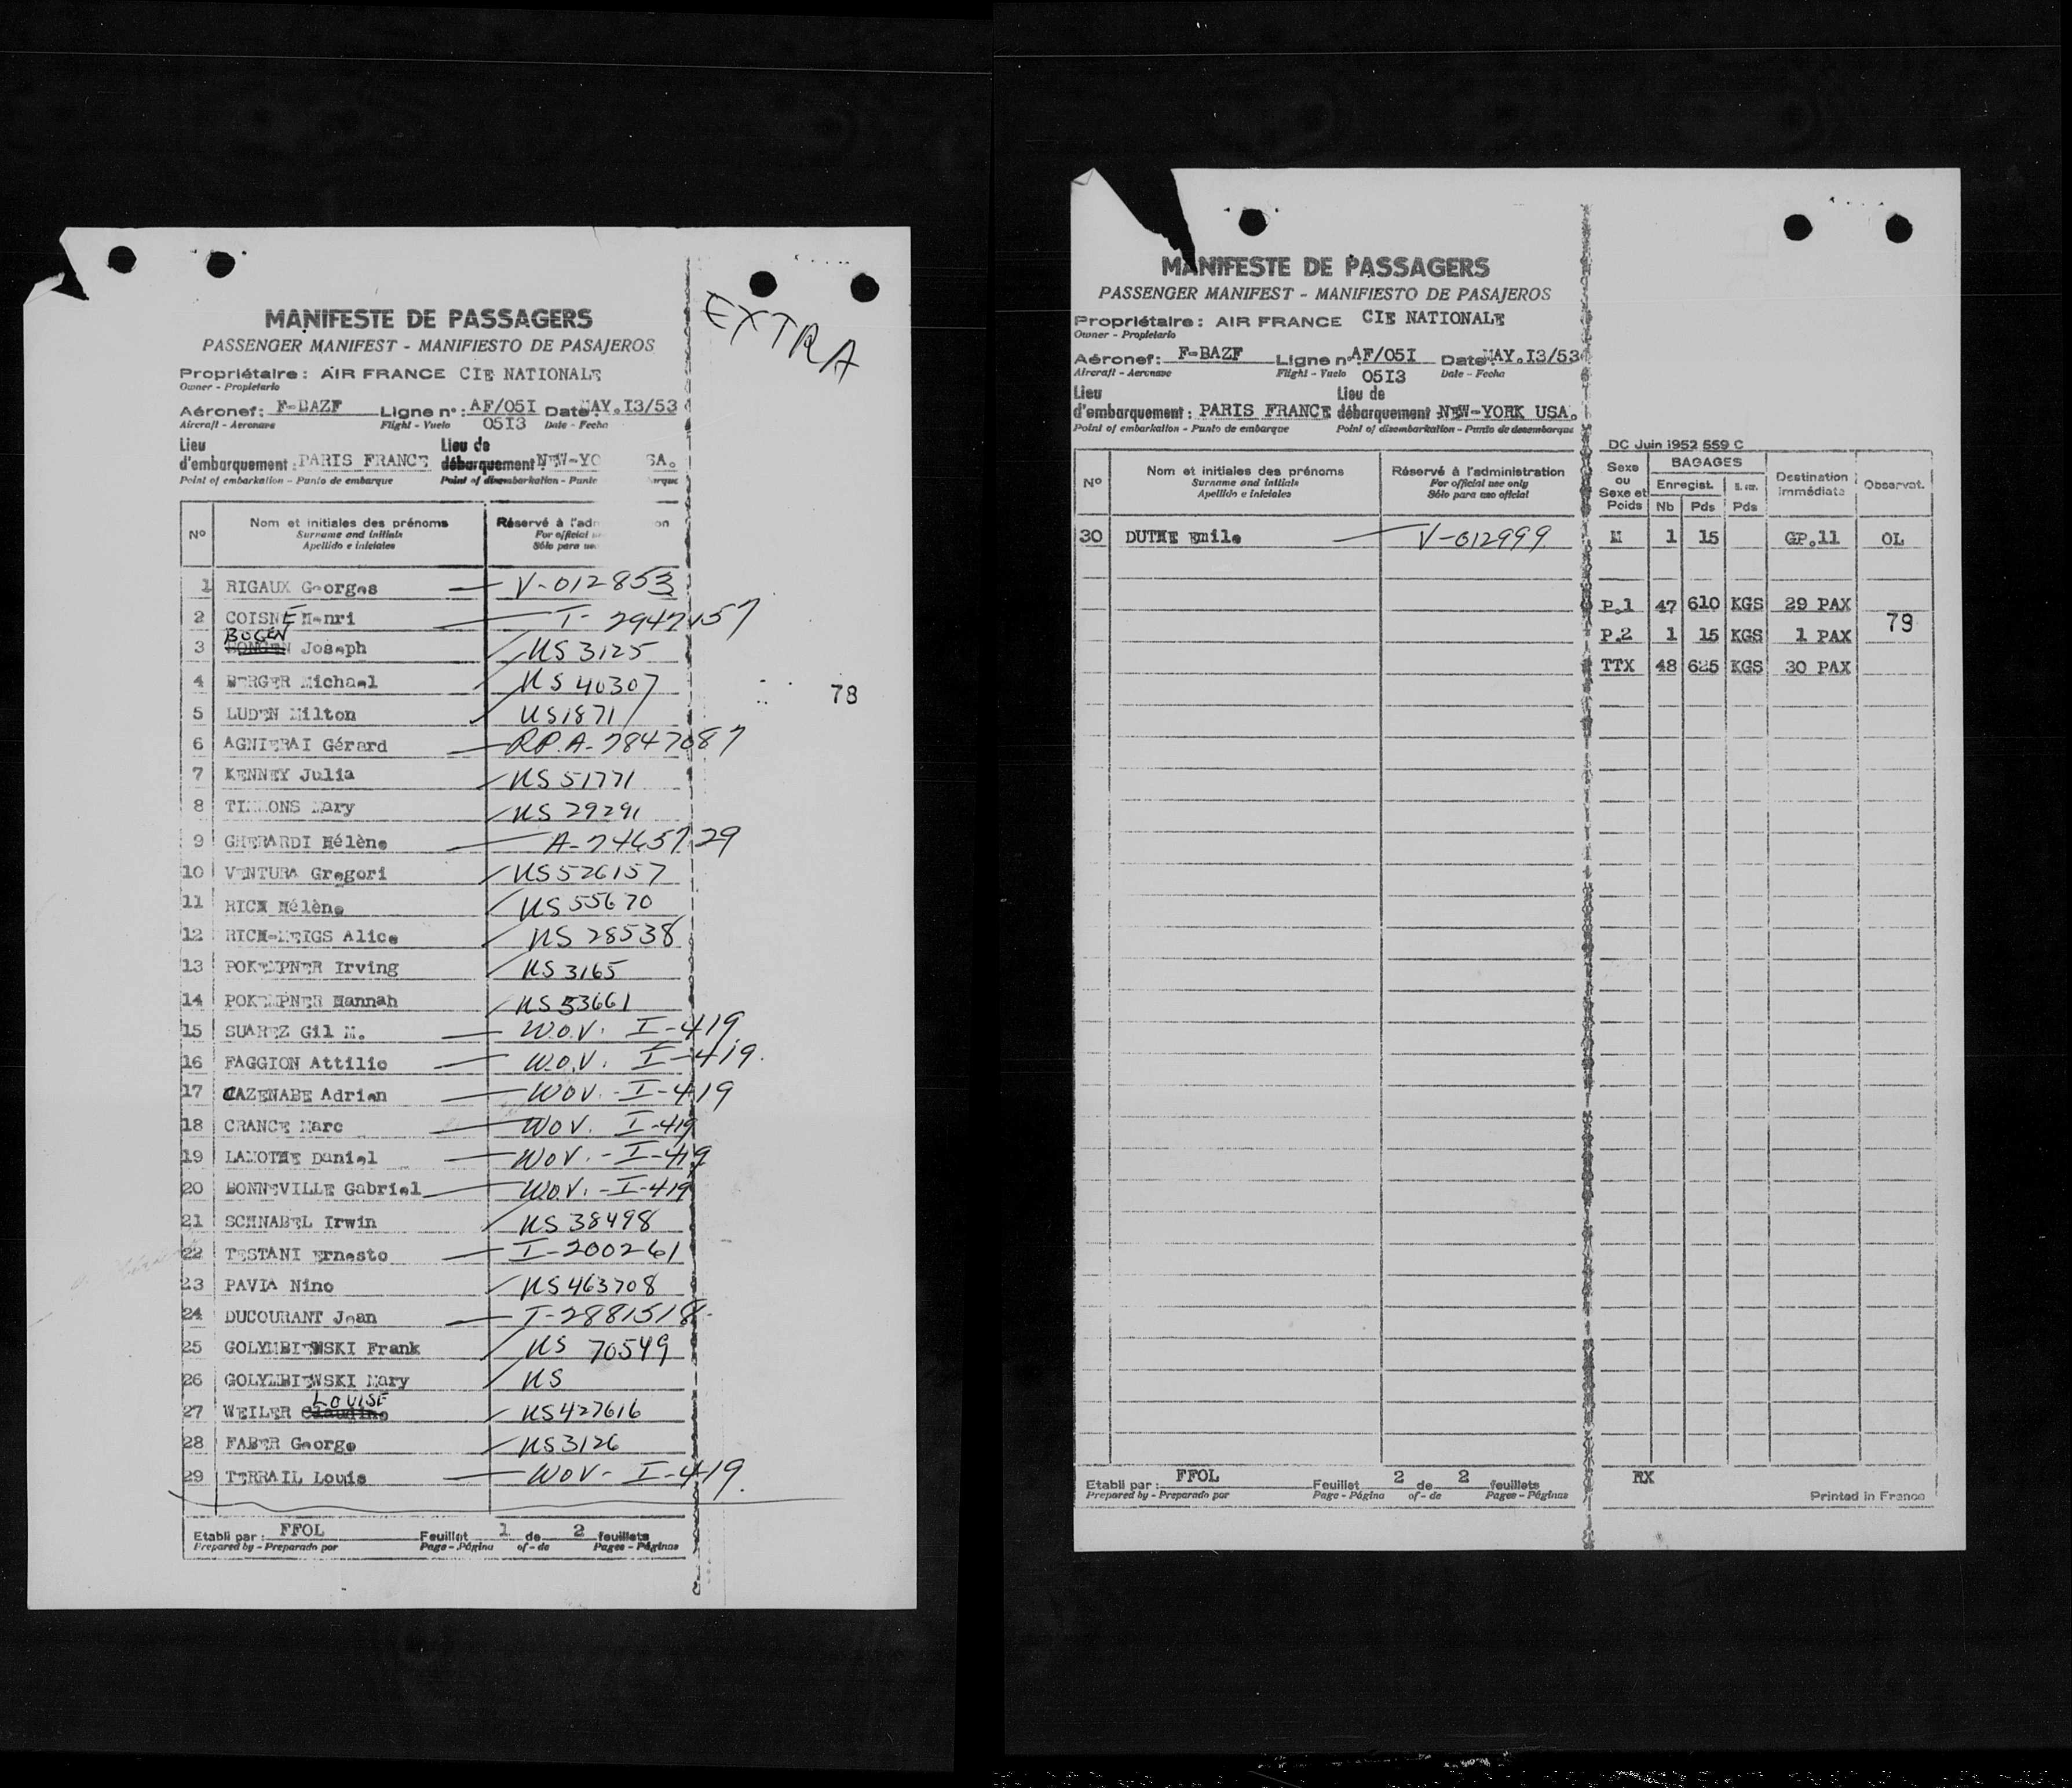 EXTRA
MANIFESTE DE PASSAGERS
PASSENGER MANIFEST - MANIFIESTO DE PASAJEROS
Propriétaire : AIR FRANCE CIE NATIONALE
Owner - Propietario
Aéronef : F-BAZF Ligne n° : AF/05I Date MAY.I3/53
Aircraft - Aeronave Flight - Vuelo 05I3 Date - Fecha
Lieu Lieu de
d'embarquement : PARIS FRANCE débarquement NEW-YO SA.
Point of embarkation - Punto de embarque Point of disembarkation - Punto arque
N° Nom et initiales des prénoms Réservé à l'adm on
Surname and initials For official
Apellido e iniciales Sólo para
1 RIGAUX Georges V-012853
2 COISNE Henri I-2947157
BOGEN
3 Joseph US 3125
4 BERGER Michael US 40307
78
5 LUDEN Milton US 1871
6 AGNIERAI Gérard R.P.A-7847087
7 KENNEY Julia US 51771
8 TIMMONS Mary US 29291
9 GHERARDI Hélène A-7465729
10 VENTURA Gregori US 526157
11 RICH Hélène US 55670
12 RICH-MEIGS Alice US 28538
13 POKEMPNER Irving US 3165
14 POKEMPNER Hannah US 53661
15 SUAREZ Gil M. W.O.V. I-419
16 FAGGION Attilio W.O.V. I-419.
17 CAZENABE Adrien WOV. - I-419
18 CRANCE Marc WOV. I-419
19 LAMOTHE Daniel WOV. - I-419
20 BONNEVILLE Gabriel W.O.V. - I-419
21 SCHNABEL Irwin US 38498
22 TESTANI Ernesto I-200261
23 PAVIA Nino US 463708
24 DUCOURANT Jean I-2881518-
25 GOLYMBIEWSKI Frank US 70549
26 GOLYMBIEWSKI Mary US
LOUISE
27 WEILER Claudine US 427616
28 FABER George US 3126
29 TERRAIL Louis WOV- I-419.
Etabli par : FFOL Feuillet 1 de 2 feuillets
Prepared by - Preparado por Page - Página of - de Pages - Páginas
MANIFESTE DE PASSAGERS
PASSENGER MANIFEST - MANIFIESTO DE PASAJEROS
Propriétaire : AIR FRANCE CIE NATIONALE
Owner - Propietario
Aéronef : F-BAZF Ligne n° AF/05I Date MAY.I3/53
Aircraft - Aeronave Flight - Vuelo 05I3 Date - Fecha
Lieu Lieu de
d'embarquement : PARIS FRANCE débarquement NEW-YORK USA.
Point of embarkation - Punto de embarque Point of disembarkation - Punto de desembarque
DC Juin 1952 559 C
N° Nom et initiales des prénoms Réservé à l'administration Sexe ou Sexe et Poids BAGAGES Destination immédiate Observat.
Surname and initials For official use only Enregist.
Apellido e iniciales Sólo para uso oficial Nb Pds Pds
30 DUTHE Emile V-012999 M 1 15 GP.11 OL
P.1 47 610 KGS 29 PAX
78
P.2 1 15 KGS 1 PAX
TTX 48 625 KGS 30 PAX
Etabli par : FFOL Feuillet 2 de 2 feuillets RX
Prepared by - Preparado por Page - Página of - de Pages - Páginas Printed in France